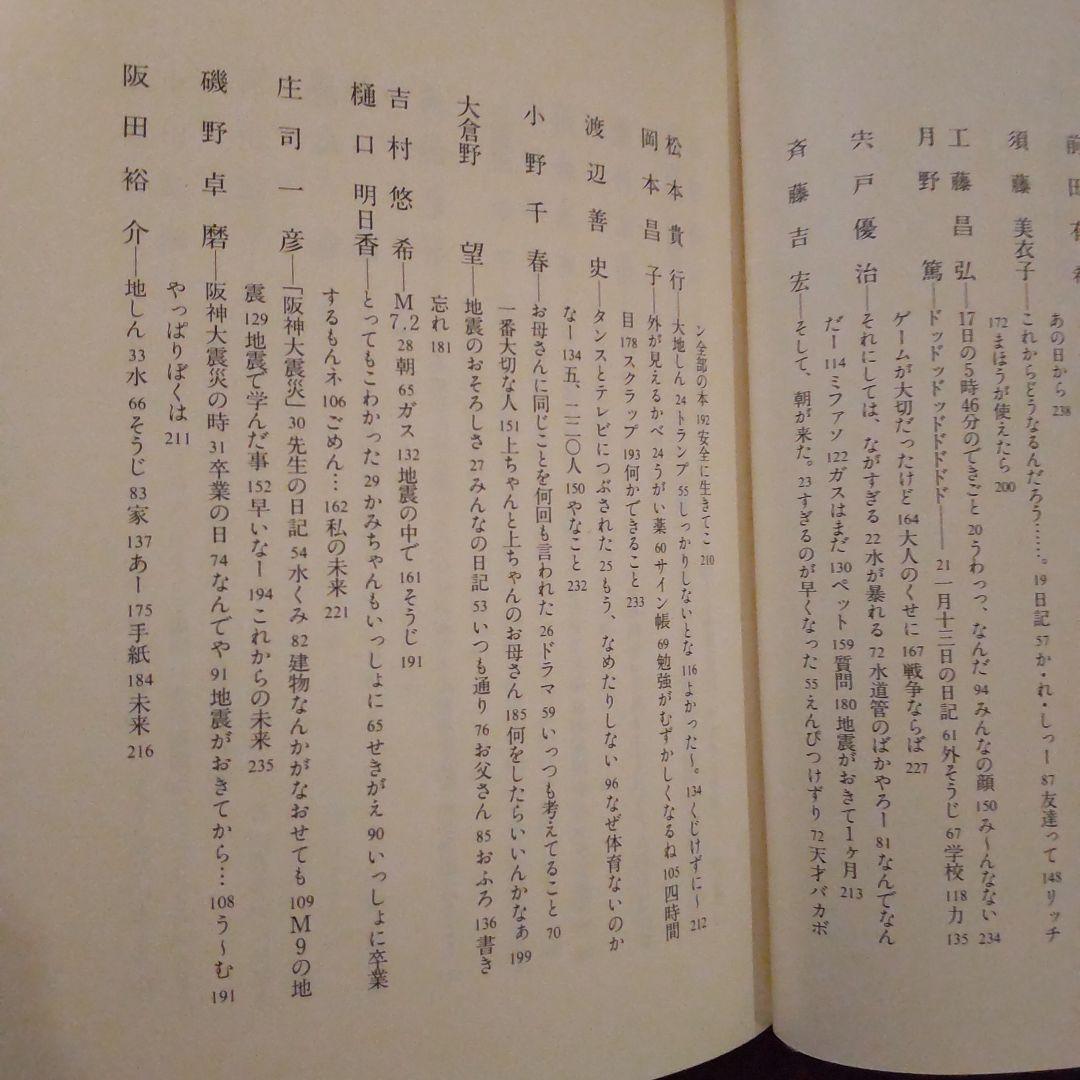 あの日から 238
須藤美衣子――これからどうなるんだろう……。19 日記 57 か・れ・しっー 87 友達って 148 リッチ
172 まほうが使えたら 200
工藤昌弘――17日の5時46分のできごと 20 うわっっ、なんだ 94 みんなの顔 150 み〜んなない 234
月野 篤――ドッドッドッドドドドド―― 21 一月十三日の日記 61 外そうじ 67 学校 118 力 135
ゲームが大切だったけど 164 大人のくせに 167 戦争ならば 227
宍戸優治――それにしては、ながすぎる 22 水が暴れる 72 水道管のばかやろー 81 なんでなん
だー 114 ミファソ 122 ガスはまだ 130 ペット 159 質問 180 地震がおきて1ヶ月 213
斉藤吉宏――そして、朝が来た。23 すぎるのが早くなった 55 えんぴつけずり 72 天才バカボ
ン全部の本 192 安全に生きてこ 210
松本貴行――大地しん 24 トランプ 55 しっかりしないとな 116 よかった〜。134 くじけずに〜 212
岡本昌子――外が見えるかべ 24 うがい薬 60 サイン帳 69 勉強がむずかしくなるね 105 四時間
目 178 スクラップ 193 何かできること 233
渡辺善史――タンスとテレビにつぶされた 25 もう、なめたりしない 96 なぜ体育ないのか
なー 134 五、二二〇人 150 やなこと 232
小野千春――お母さんに同じことを何回も言われた 26 ドラマ 59 いっつも考えてること 70
一番大切な人 151 上ちゃんと上ちゃんのお母さん 185 何をしたらいいんかなぁ 199
大倉野 望――地震のおそろしさ 27 みんなの日記 53 いつも通り 76 お父さん 85 おふろ 136 書き
忘れ 181
吉村悠希――M7.2 28 朝 65 ガス 132 地震の中で 161 そうじ 191
樋口明日香――とってもこわかった 29 かみちゃんもいっしょに 65 せきがえ 90 いっしょに卒業
するもんネ 106 ごめん… 162 私の未来 221
庄司一彦――「阪神大震災」30 先生の日記 54 水くみ 82 建物なんかがなおせても 109 M9の地
震 129 地震で学んだ事 152 早いなー 194 これからの未来 235
磯野卓磨――阪神大震災の時 31 卒業の日 74 なんでや 91 地震がおきてから… 108 う〜む 191
やっぱりぼくは 211
阪田裕介――地しん 33 水 66 そうじ 83 家 137 あー 175 手紙 184 未来 216